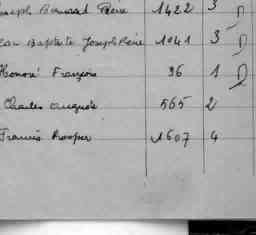 Joseph Bernard Reine 1422 3
Jean Baptiste Joseph Reine 1041 3
Honoré François 96 1
Charles Auguste 565 2
Francis Prosper 1607 4